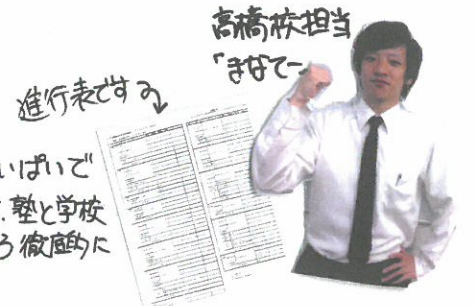 高橋校担当
"まなてー
進行表です
いぱいで
.塾と学校
ろ徹底的に